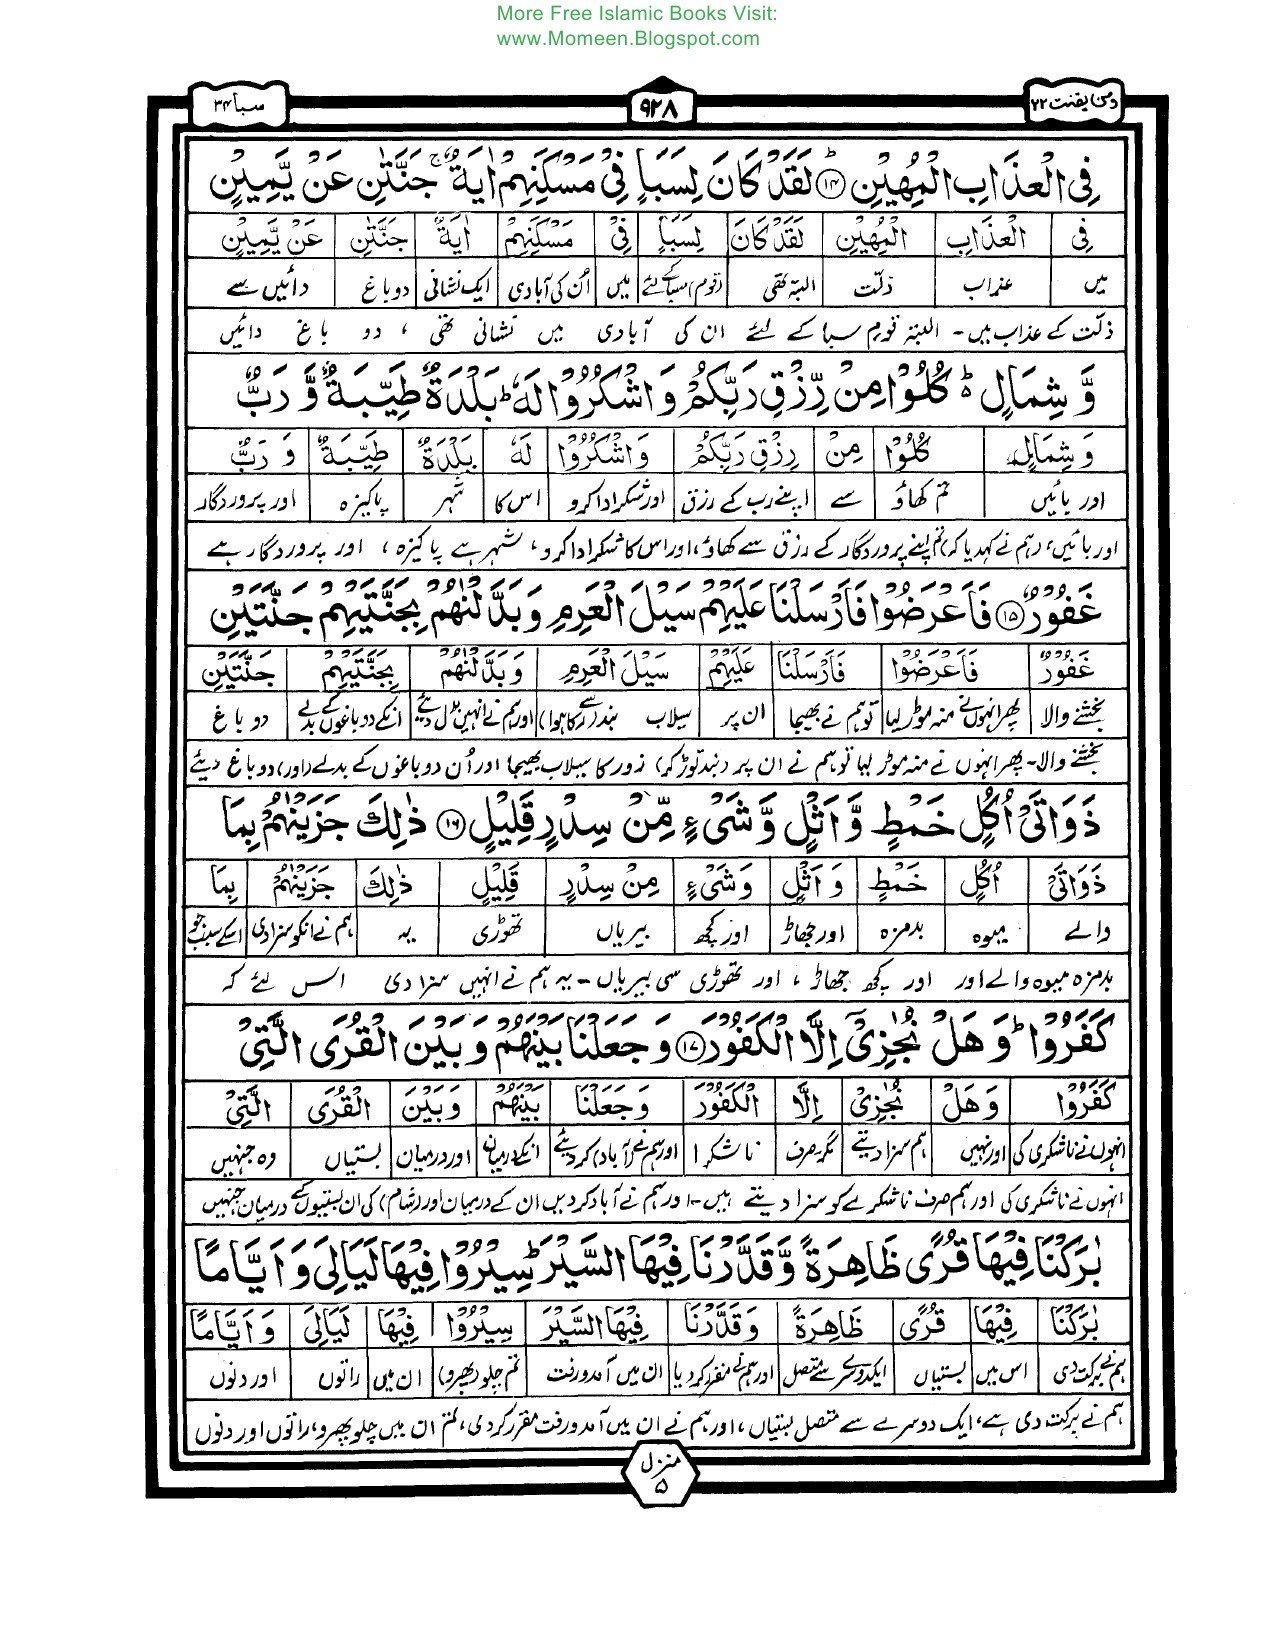 More Free Islamic Books Visit:
www.Momeen.Blogspot.com
ومن یقنت ۲۲
۹۲۸
سبا ۳۴
فِی الْعَذَابِ الْمُهِیْنِ ۱۴ لَقَدْ كَانَ لِسَبَاٍ فِیْ مَسْكَنِهِمْ اٰیَةٌ ۚ جَنَّتٰنِ عَنْ یَّمِیْنٍ
فِی الْعَذَابِ الْمُهِیْنِ لَقَدْ كَانَ لِسَبَاٍ فِیْ مَسْكَنِهِمْ اٰیَةٌ جَنَّتٰنِ عَنْ یَّمِیْنٍ
میں عذاب ذلّت البتہ تھی (قوم) سبا کے لئے میں اُن کی آبادی ایک نشانی دو باغ دائیں سے
ذلّت کے عذاب میں - البتہ قوم سبا کے لئے ان کی آبادی میں نشانی تھی ، دو باغ دائیں
وَّ شِمَالٍ ؕ كُلُوْا مِنْ رِّزْقِ رَبِّكُمْ وَ اشْكُرُوْا لَهٗ ؕ بَلْدَةٌ طَیِّبَةٌ وَّ رَبٌّ
وَ شِمَالٍ كُلُوْا مِنْ رِزْقِ رَبِّكُمْ وَ اشْكُرُوْا لَهٗ بَلْدَةٌ طَیِّبَةٌ وَ رَبٌّ
اور بائیں تم کھاؤ سے اپنے رب کے رزق اور شکر ادا کرو اس کا شہر پاکیزہ اور پروردگار
اور بائیں، (ہم نے کہدیا کہ) تم اپنے پروردگار کے رزق سے کھاؤ، اور اس کا شکر ادا کرو ، شہر ہے پاکیزہ ، اور پروردگار ہے
غَفُوْرٌ ۱۵ فَاَعْرَضُوْا فَاَرْسَلْنَا عَلَیْهِمْ سَیْلَ الْعَرِمِ وَ بَدَّلْنٰهُمْ بِجَنَّتَیْهِمْ جَنَّتَیْنِ
غَفُوْرٌ فَاَعْرَضُوْا فَاَرْسَلْنَا عَلَیْهِمْ سَیْلَ الْعَرِمِ وَ بَدَّلْنٰهُمْ بِجَنَّتَیْهِمْ جَنَّتَیْنِ
بخشنے والا پھر انہوں نے منہ موڑ لیا تو ہم نے بھیجا ان پر سیلاب بند سے (رکا ہوا) اور ہم نے انہیں بدل دیئے انکے دو باغوں کے بدلے دو باغ
بخشنے والا - پھر انہوں نے منہ موڑ لیا تو ہم نے ان پر (بند توڑ کر) زور کا سیلاب بھیجا اور اُن دو باغوں کے بدلے (اور) دو باغ دیئے
ذَوَاتَیْ اُكُلٍ خَمْطٍ وَّ اَثْلٍ وَّ شَیْءٍ مِّنْ سِدْرٍ قَلِیْلٍ ۱۶ ذٰلِكَ جَزَیْنٰهُمْ بِمَا
ذَوَاتَیْ اُكُلٍ خَمْطٍ وَ اَثْلٍ وَ شَیْءٍ مِنْ سِدْرٍ قَلِیْلٍ ذٰلِكَ جَزَیْنٰهُمْ بِمَا
والے میوہ بدمزہ اور جھاڑ اور کچھ بیریاں تھوڑی یہ ہم نے انکو سزا دی اسکے سبب جو
بدمزہ میوہ والے اور اور کچھ جھاڑ ، اور تھوڑی سی بیریاں - یہ ہم نے انہیں سزا دی اس لئے کہ
كَفَرُوْا ؕ وَ هَلْ نُجٰزِیْۤ اِلَّا الْكَفُوْرَ ۱۷ وَ جَعَلْنَا بَیْنَهُمْ وَ بَیْنَ الْقُرَی الَّتِیْ
كَفَرُوْا وَ هَلْ نُجٰزِیْ اِلَّا الْكَفُوْرَ وَ جَعَلْنَا بَیْنَهُمْ وَ بَیْنَ الْقُرَی الَّتِیْ
انہوں نے ناشکری کی اور نہیں ہم سزا دیتے مگر صرف ناشکرا اور ہم نے (آباد) کر دیئے انکے درمیان اور درمیان بستیاں وہ جنہیں
انہوں نے ناشکری کی اور ہم صرف ناشکرے کو سزا دیتے ہیں - اور ہم نے آباد کر دیں ان کے درمیان اور (شام) کی ان بستیوں کے درمیان جنہیں
بٰرَكْنَا فِیْهَا قُرًی ظَاهِرَةً وَّ قَدَّرْنَا فِیْهَا السَّیْرَ ؕ سِیْرُوْا فِیْهَا لَیَالِیَ وَ اَیَّامًا
بٰرَكْنَا فِیْهَا قُرًی ظَاهِرَةً وَ قَدَّرْنَا فِیْهَا السَّیْرَ سِیْرُوْا فِیْهَا لَیَالِیَ وَ اَیَّامًا
ہم نے برکت دی اس میں بستیاں ایک دوسرے سے متصل اور ہم نے مقرر کر دیا ان میں آمد ورفت تم چلو (پھرو) ان میں راتوں اور دنوں
ہم نے برکت دی ہے، ایک دوسرے سے متصل بستیاں ، اور ہم نے ان میں آمد ورفت مقرر کر دی، تم ان میں چلو پھرو، راتوں اور دنوں
منزل ۵